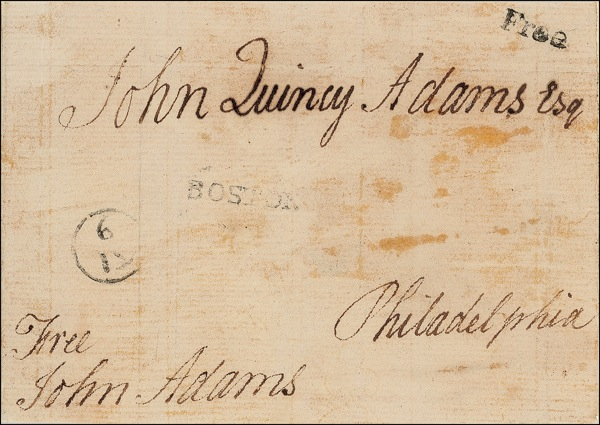 Free
John Quincy Adams Esq
BOSTON
6
Philadelphia
Free
John Adams